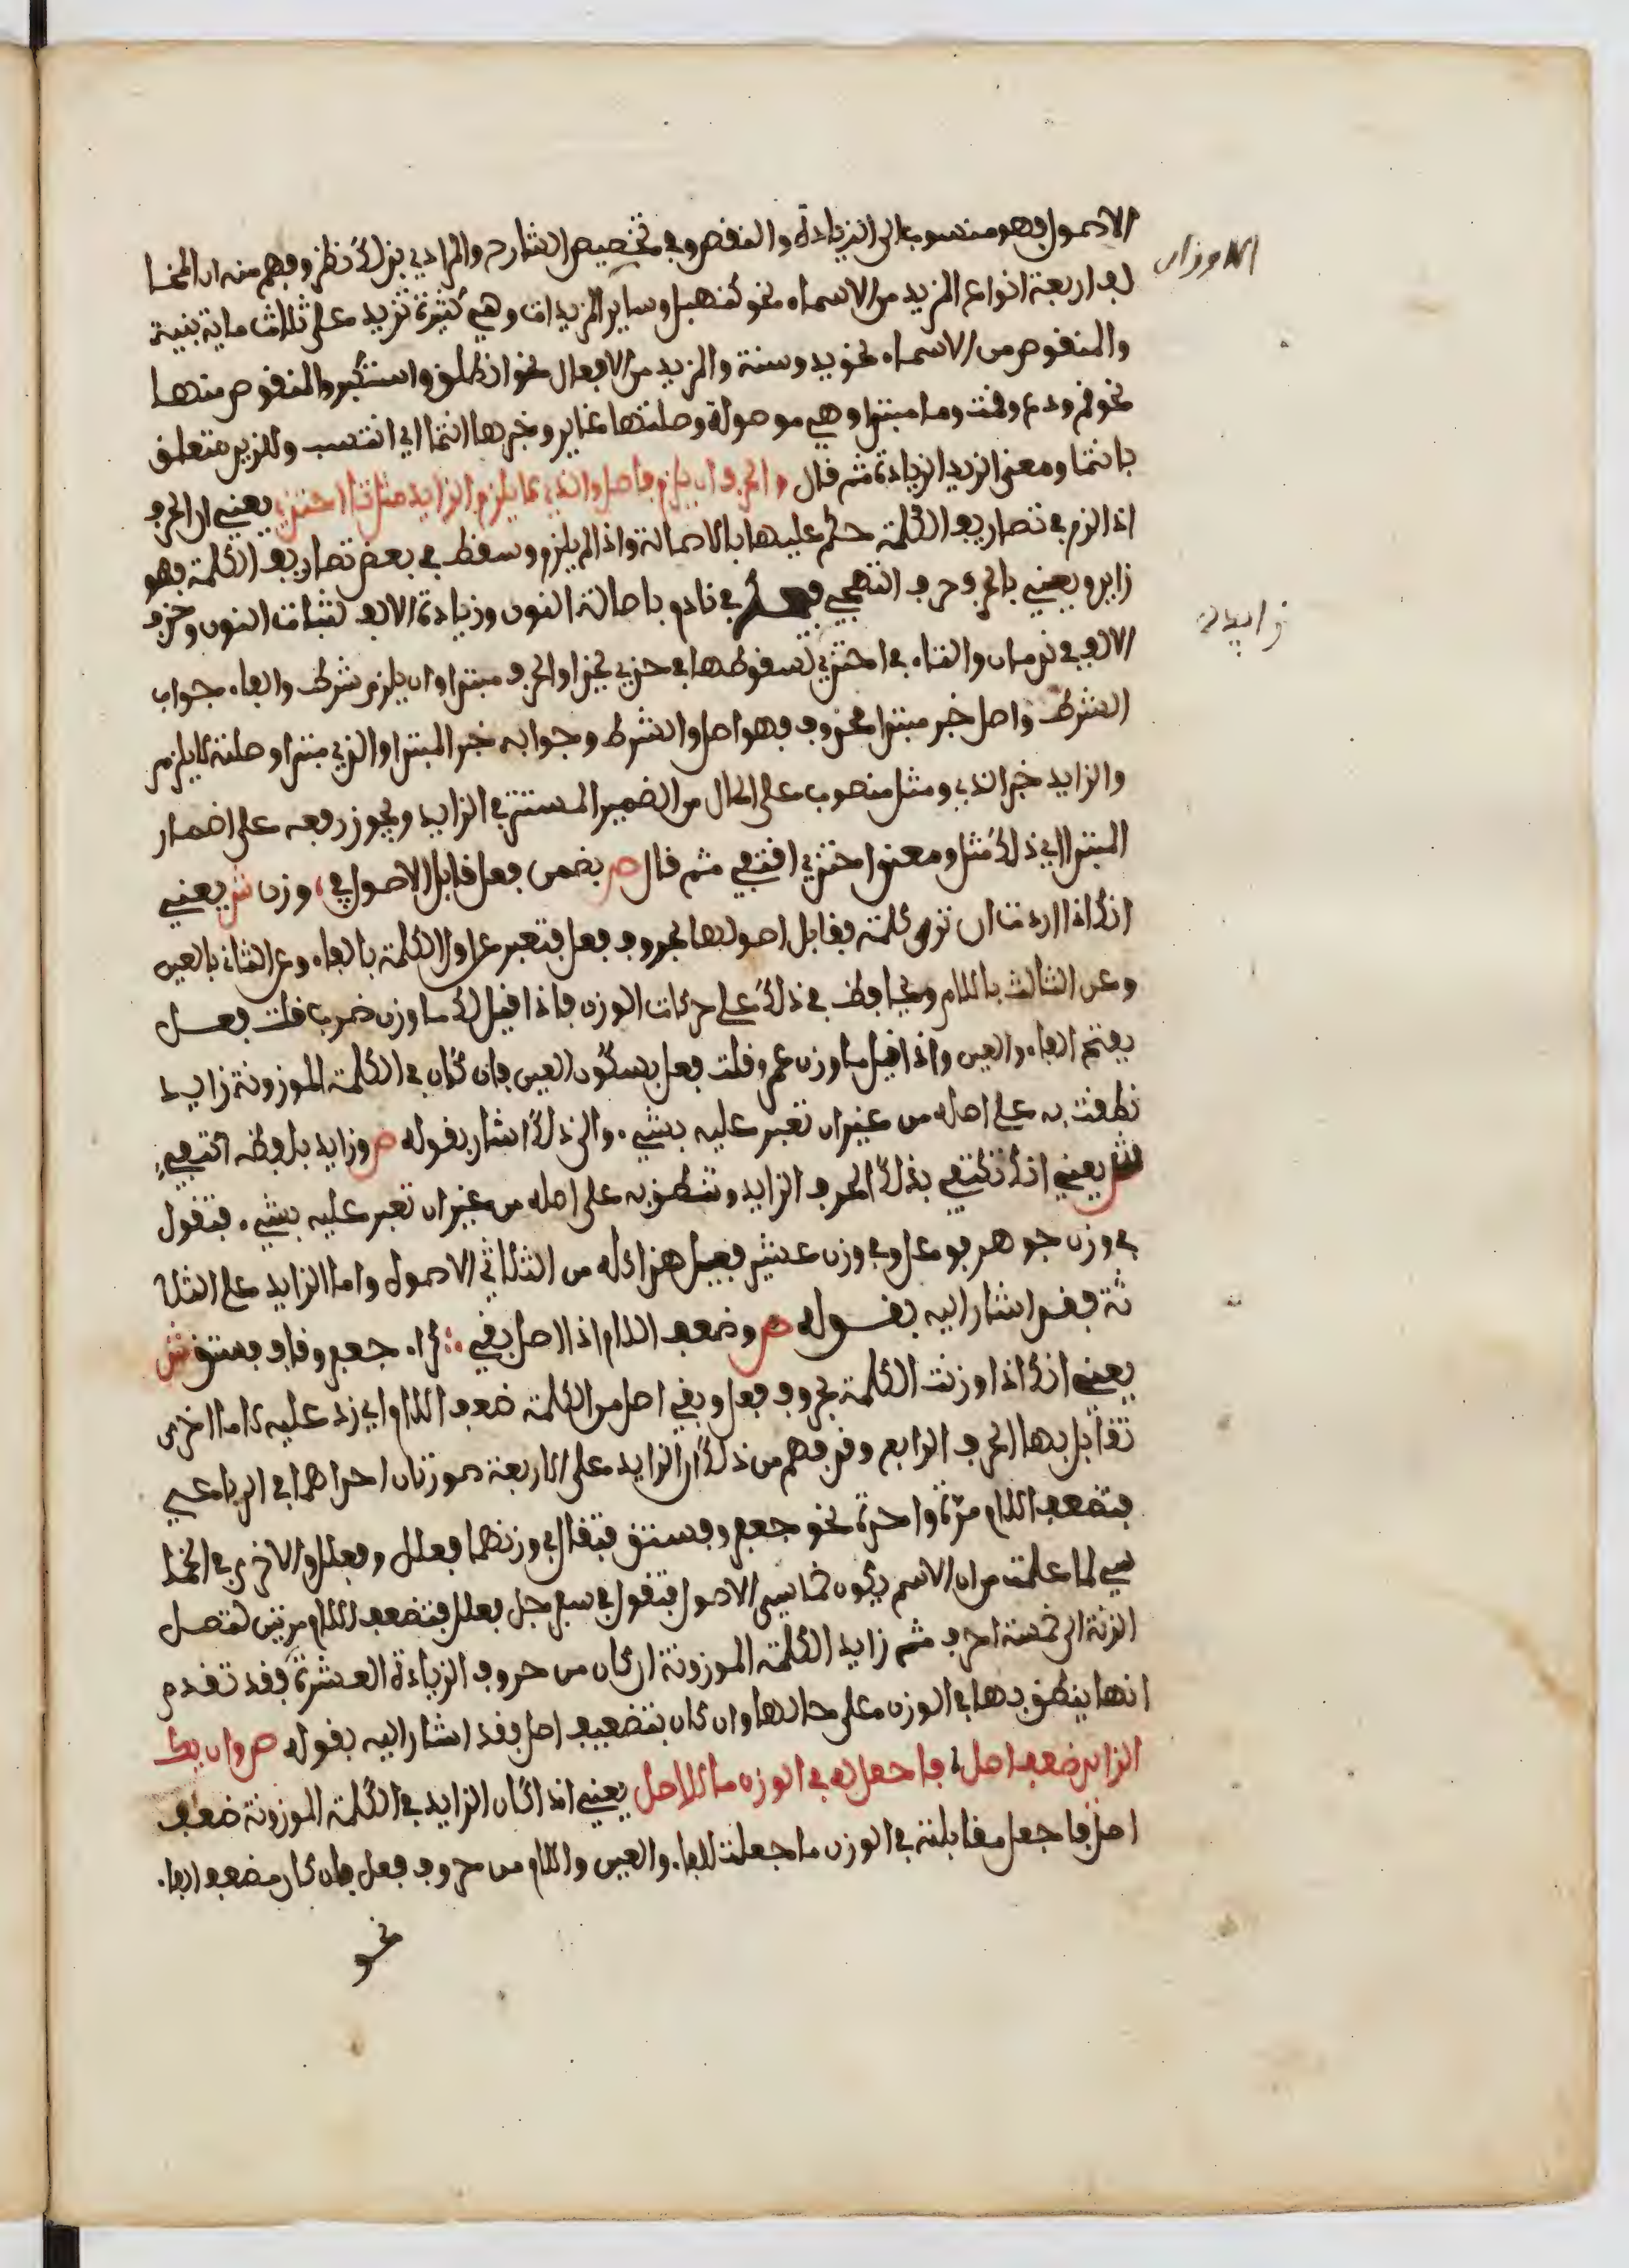 الاصول فهو منسوب الى الزيادة والنقص وفي تخصيص الشارح والمرادي بذلك نظر وفهم منه ان المخا
لف اربعة انواع المزيد من الاسماء نحو كنهبل وساير المزيدات وهي كثيرة تزيد على ثلاث ماية بنية
والمنقوص من الاسماء نحو يد وسنة والمزيد من الافعال نحو انطلق واستكبر والمنقوص منها
نحو قم ودع وقت وما مبتدا وهي موصولة وصلتها غاير وخبرها انتما اي انتسب وللزيد متعلق
بانتما ومعنى الزيد الزيادة ثم قال والحرف ان يلزم فاصل والذي لا يلزم الزايد مثل تا احتذي يعني ان الحرف
اذا لزم في تصاريف الكلمة حكم عليها بالاصالة واذا لم يلزم وسقط في بعض تصاريف الكلمة فهو
زايد ويعني بالحرف حرف التهجي في نادم باصالة النون وزيادة الالف لثبات النون وحذف
الالف في ندمان والتاء في احتذي لسقوطها في حذي يحذا والحرف مبتدا وان يلزم شرط والفاء جواب
الشرط واصل خبر مبتدا محذوف فهو اصل والشرط وجوابه خبر المبتدا والذي مبتدا وصلته لا يلزم
والزايد خبر الذي ومثل منصوب على الحال من الضمير المستتر في الزايد ويجوز رفعه على اضمار
المبتدا اي ذلك مثل ومعنى احتذي اقتفي ثم قال ص بضمن فعل قابل الاصول في وزن ش يعني
انك اذا اردت ان تزن كلمة فقابل اصولها بحروف فعل فتعبر عن اول الكلمة بالفاء وعن الثاني بالعين
وعن الثالث باللام وتحافظ في ذلك على حركات الوزن فاذا قيل لك ما وزن ضرب قلت فعل
بفتح الفاء والعين واذا قيل ما وزن عمرو قلت فعل بسكون العين فان كان في الكلمة الموزونة زايد
نطقت به على اصله من غير ان تعبر عليه بشيء والى ذلك اشار بقوله ص وزايد بلفظه اكتفي
ش يعني انك تكتفي بذلك الحرف الزايد وتنطق به على اصله من غير ان تعبر عليه بشيء فتقول
في وزن جوهر فوعل وفي وزن عثير فعيل هذا كله من الثلاثي الاصول واما الزايد على الثلا
ثة فقد اشار اليه بقوله ص وضعف اللام اذا اصل بقي كراء جعفر وقاف فستق ش
يعني انك اذا وزنت الكلمة بحروف فعل وبقي اصل من الكلمة ضعف اللام اي زد عليه لاما اخرى
تقابل بها الحرف الرابع وقد فهم من ذلك ان الزايد على الاربعة صورتان احداهما في الرباعي
فتضعف اللام مرة واحدة نحو جعفر وفستق فتقال في وزنهما فعلل وفعلل والاخرى في الخما
سي لما علمت من ان الاسم يكون خماسي الاصول فتقول في سفرجل فعلل فتضعف اللام مرتين لتصل
الزنة الى خمسة احرف ثم زايد الكلمة الموزونة ان كان من حروف الزيادة العشرة فقد تقدم
انها ينطق بها في الوزن على حالها وان كان بتضعيف اصل فقد اشار اليه بقوله ص وان يك
الزايد ضعف اصل فاجعل له في الوزن ما للاصل يعني اذا كان الزايد في الكلمة الموزونة ضعف
اصل فاجعل مقابلته في الوزن ما جعلت للفاء والعين واللام من حروف فعل فان كان مضعف الفاء
نحو
الاوزان
زايدة